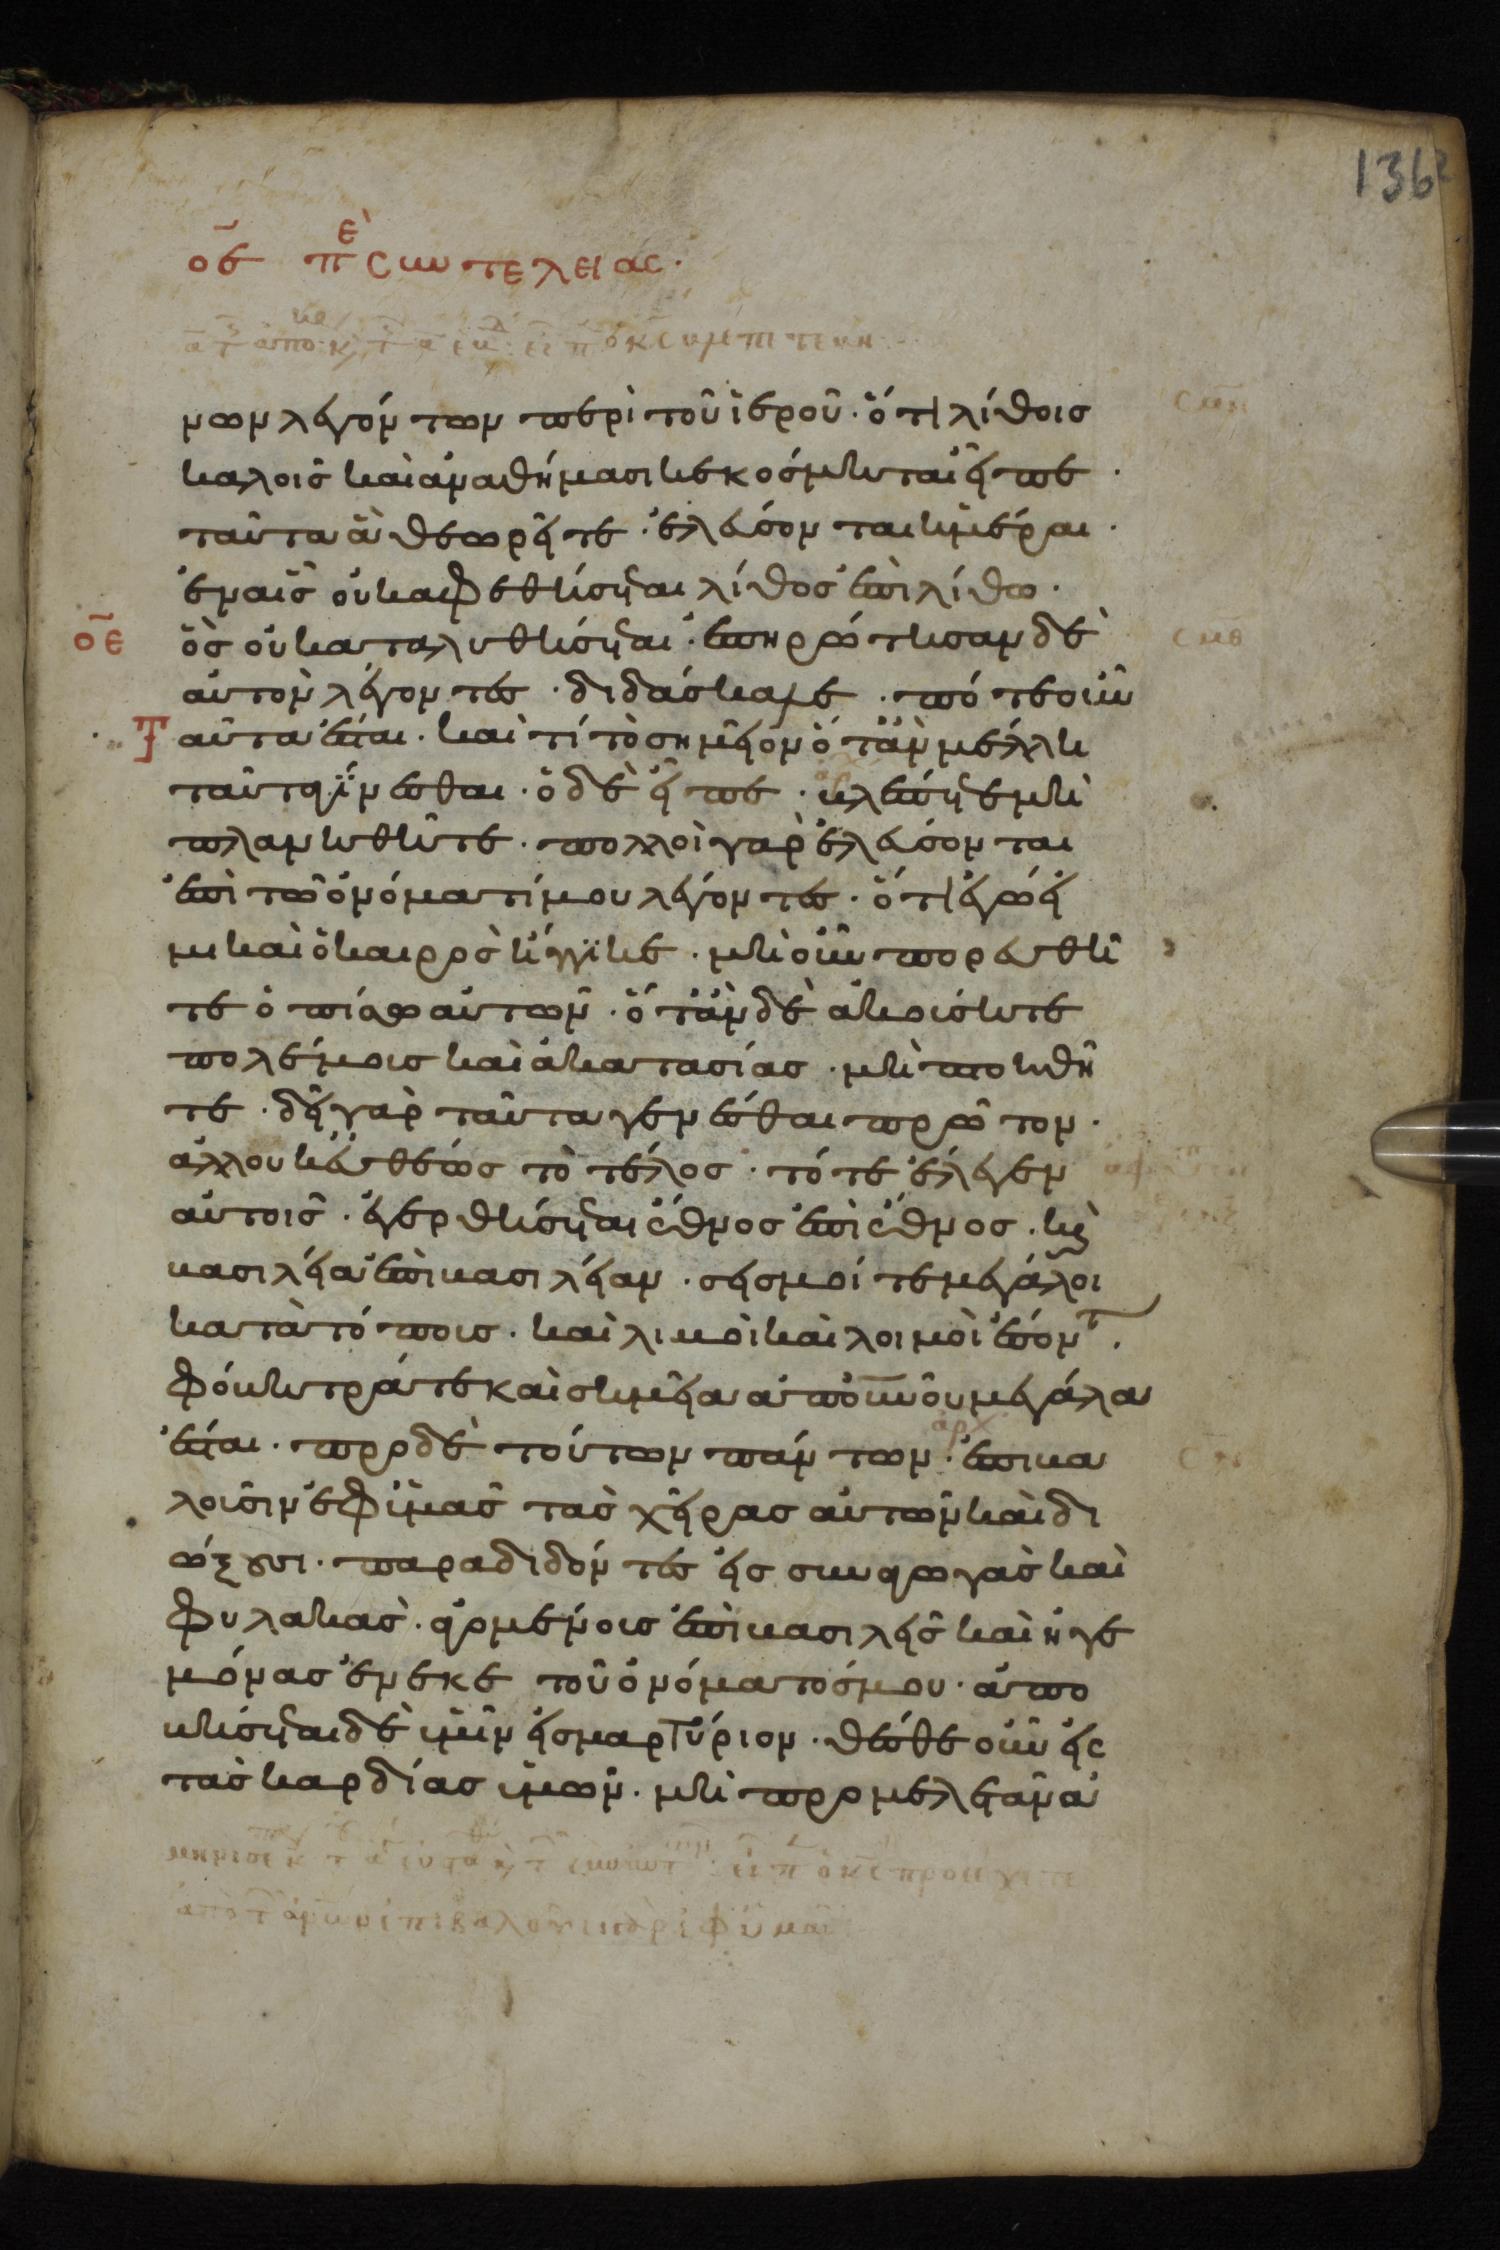 136
οε̄ πὲ συντελείας·
νων λεγόντων περὶ τοῦ ἱεροῦ· ὅτι λίθοις
καλοῖς καὶ ἀναθήμασι κεκόσμηται εἶπε·
ταῦτα ἃ θεωρεῖτε· ἐλεύσονται ἡμέραι·
ἐν αἷς οὐκ ἀφεθήσεται λίθος ἐπὶ λίθω·
ὃς οὐ καταλυθήσεται· ἐπηρώτησαν δὲ
οε̄
αὐτὸν λέγοντες· διδάσκαλε· πότε οὖν
ταῦτα ἔσται· καὶ τί τὸ σημεῖον ὅταν μέλλη
ταῦτα γίνεσθαι· ὁ δὲ εἶπε· βλέπετε μὴ
πλανηθῆτε· πολλοὶ γὰρ ἐλεύσονται
ἐπὶ τῶ ὀνόματί μου λέγοντες· ὅτι ἐγώ εἰ
μι καὶ ὁ καιρὸς ἤγγικε· μὴ οὖν πορευθῆ
τε ὀπίσω αὐτῶν· ὅταν δὲ ἀκούσητε
πολέμους καὶ ἀκαταστασίας· μὴ πτοηθῆ
τε· δεῖ γὰρ ταῦτα γενέσθαι πρῶτον·
ἀλλ' οὐκ εὐθέως τὸ τέλος· τότε ἔλεγεν
αὐτοῖς· ἐγερθήσεται ἔθνος ἐπὶ ἔθνος· καὶ
βασιλεία ἐπὶ βασιλείαν· σεισμοί τε μεγάλοι
κατὰ τόπους· καὶ λιμοὶ καὶ λοιμοὶ ἔσοντ·
φόβητρά τε καὶ σημεῖα ἀπ' οὐνοῦ μεγάλα
ἔσται· πρὸ δὲ τούτων πάντων· ἐπιβα
λοῦσιν ἐφ' ὑμᾶς τὰς χεῖρας αὐτῶν καὶ δι
ώξουσι· παραδιδόντες εἰς συναγωγὰς καὶ
φυλακὰς· ἀγομένους ἐπὶ βασιλεῖς καὶ ἡγε
μόνας ἕνεκε τοῦ ὀνόματός μου· ἀπο
βήσεται δὲ ὑμῖν εἰς μαρτύριον· θέσθε οὖν εἰς
τὰς καρδίας ὑμῶν· μὴ προμελετᾶν ἀ